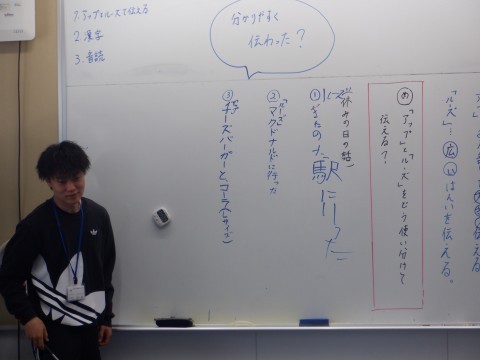 1.アップとルーズで伝える
2.漢字
3.音読
分かりやすく
伝わった?
「ルーズ」…広いはんいを伝える。
め「アップ」と「ルーズ」をどう使い分けて
伝える?
休みの日の話
①きたの
駅に行った
②マクドナルドに行った
ルーズ
③チーズバーガーとコーラ(Lサイズ)